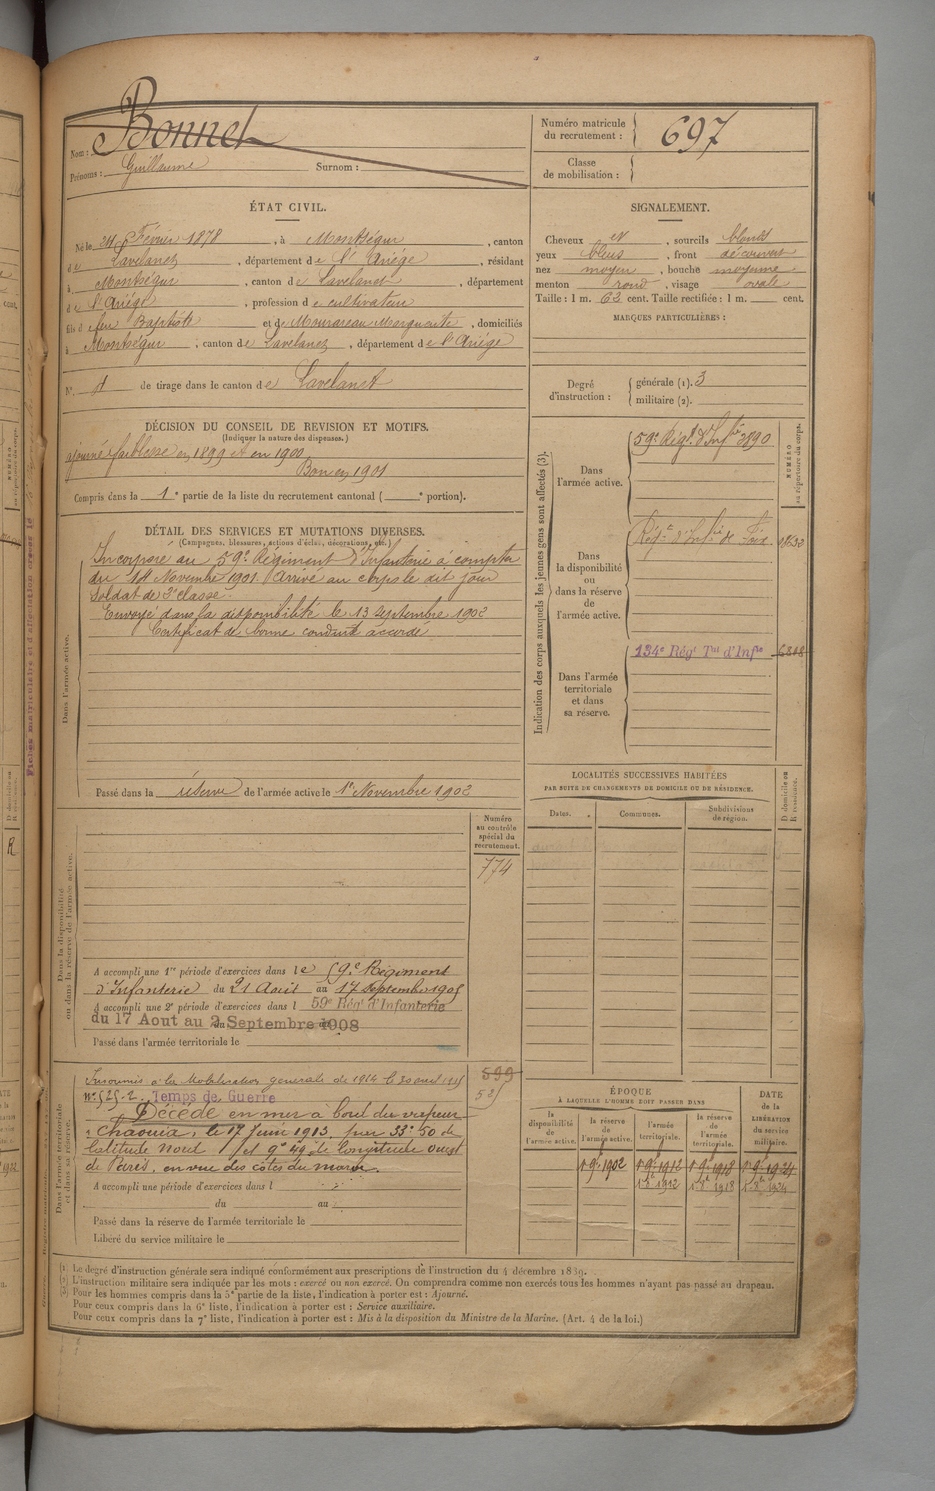 Nom : Bonnet
Prénoms : Guillaume Surnom :
Numéro matricule du recrutement : 697
Classe de mobilisation :
ÉTAT CIVIL.
Né le 24 Février 1878, à Montségur, canton
de Lavelanet, département de l'Ariége, résidant
à Montségur, canton de Lavelanet, département
de l'Ariége, profession de cultivateur
fils de feu Baptiste et de Marguerite, domiciliés
à Montségur, canton de Lavelanet, département de l'Ariége
N° de tirage dans le canton de Lavelanet
SIGNALEMENT.
Cheveux et, sourcils blonds
yeux bleus, front découvert
nez moyen, bouche moyenne
menton rond, visage ovale
Taille : 1 m. 62 cent. Taille rectifiée : 1 m. cent.
MARQUES PARTICULIÈRES :
Degré d'instruction : générale (1). 3
militaire (2).
DÉCISION DU CONSEIL DE REVISION ET MOTIFS.
(Indiquer la nature des dispenses.)
ajourné faiblesse en 1899 et en 1900
Bon en 1901
Compris dans la 1e partie de la liste du recrutement cantonal ( e portion).
DÉTAIL DES SERVICES ET MUTATIONS DIVERSES.
(Campagnes, blessures, actions d'éclat, décorations, etc.)
Dans l'armée active.
Incorporé au 59e Régiment d'Infanterie à compter
du 14 Novembre 1901. Arrivé au corps le dit jour
Soldat de 2e classe.
Envoyé dans la disponibilité le 13 septembre 1902
Certificat de bonne conduite accordé
Passé dans la réserve de l'armée active le 1er Novembre 1902
Indication des corps auxquels les jeunes gens sont affectés (3).
NUMÉRO au répertoire du corps.
Dans l'armée active.
59e Régt d'Infie 3890
Dans la disponibilité ou dans la réserve de l'armée active.
Régt d'Infie de Foix
Dans l'armée territoriale et dans sa réserve.
134e Régt Tal d'Infie
LOCALITÉS SUCCESSIVES HABITÉES
PAR SUITE DE CHANGEMENTS DE DOMICILE OU DE RÉSIDENCE.
Dates. Communes. Subdivisions de région. D domicile ou R résidence.
Dans la disponibilité ou dans la réserve de l'armée active.
Numéro au contrôle spécial du recrutement.
774
A accompli une 1re période d'exercices dans le 59e Régiment
d'Infanterie du 21 Août au 17 Septembre 1905
A accompli une 2e période d'exercices dans l 59e Régt d'Infanterie
du 17 Aout au Septembre 1908
Passé dans l'armée territoriale le
Dans l'armée territoriale et dans sa réserve.
Insoumis à la Mobilisation générale de 1914 le 30 avril 1915
n° 525-2. Temps de Guerre
599
525
Décédé en mer à bord du vapeur
"Chaouia", le 17 Juin 1913, par 33° 50 de
latitude nord et 9° 49 de longitude ouest
de Paris, en vue des côtes du maroc.
A accompli une période d'exercices dans l
du au
Passé dans la réserve de l'armée territoriale le
Libéré du service militaire le
ÉPOQUE
À LAQUELLE L'HOMME DOIT PASSER DANS
la disponibilité de l'armée active. la réserve de l'armée active. l'armée territoriale. la réserve de l'armée territoriale.
DATE de la LIBÉRATION du service militaire.
1 9bre 1902 1 9bre 1912 1 9bre 1918 1 9bre 1924
1 8bre 1912 1 8bre 1918 1 8bre 1924
(1) Le degré d'instruction générale sera indiqué conformément aux prescriptions de l'instruction du 4 décembre 1889.
(2) L'instruction militaire sera indiquée par les mots : exercé ou non exercé. On comprendra comme non exercés tous les hommes n'ayant pas passé au drapeau.
(3) Pour les hommes compris dans la 5e partie de la liste, l'indication à porter est : Ajourné.
Pour ceux compris dans la 6e liste, l'indication à porter est : Service auxiliaire.
Pour ceux compris dans la 7e liste, l'indication à porter est : Mis à la disposition du Ministre de la Marine. (Art. 4 de la loi.)